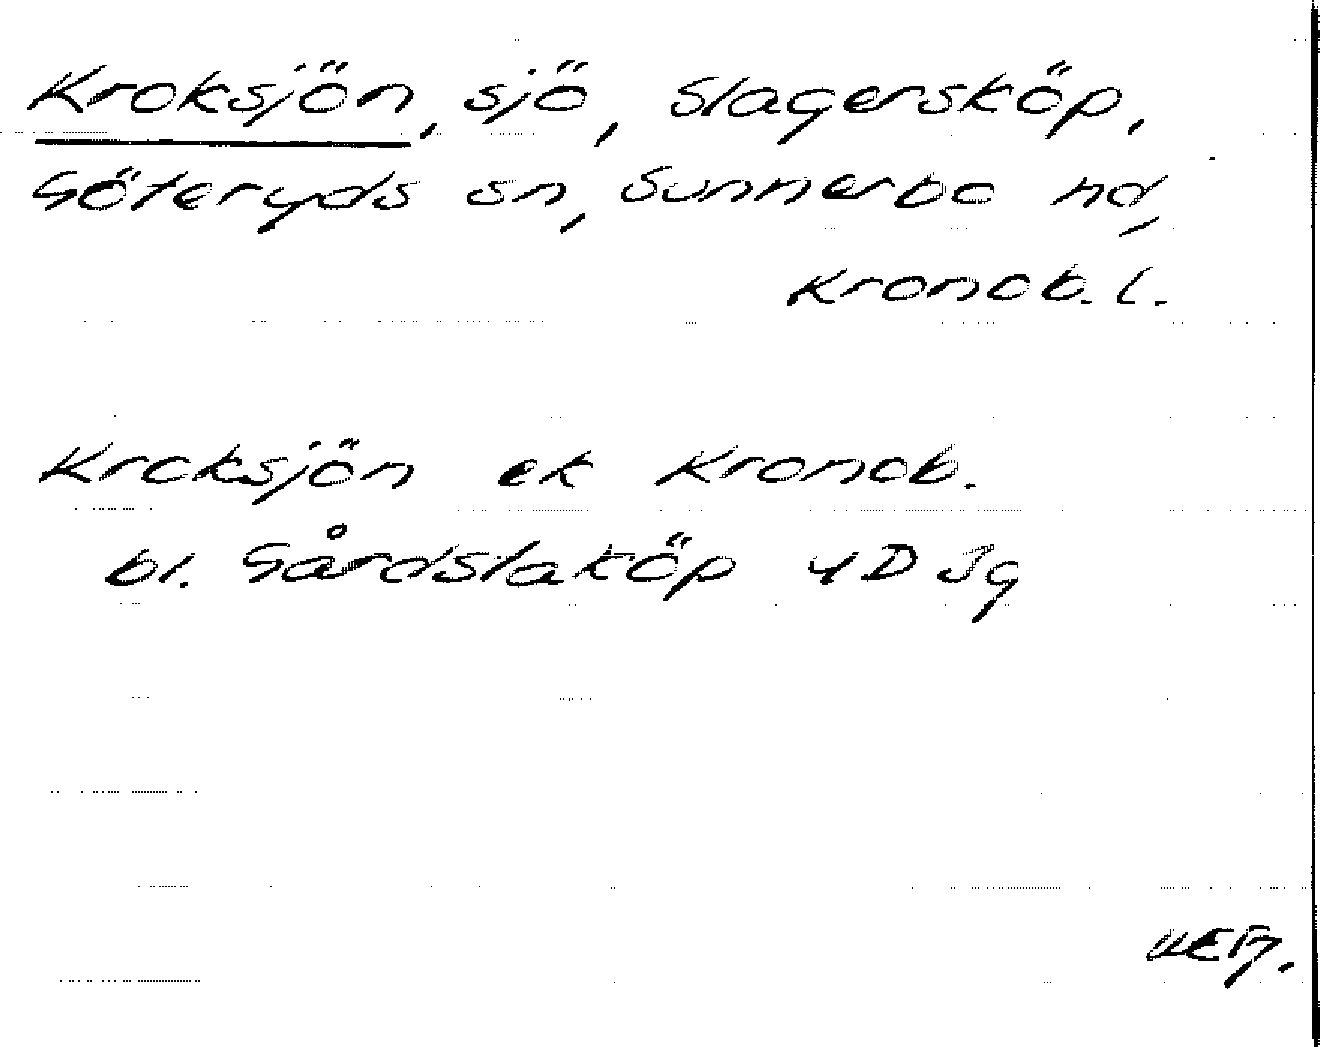 Kroksjön, sjö, Slagersköp,
Göteryds sn, Sunnerbo hd,
Kronob. l.
Kroksjön ek Kronob.
bl. Gårdslaköp 4D 3g